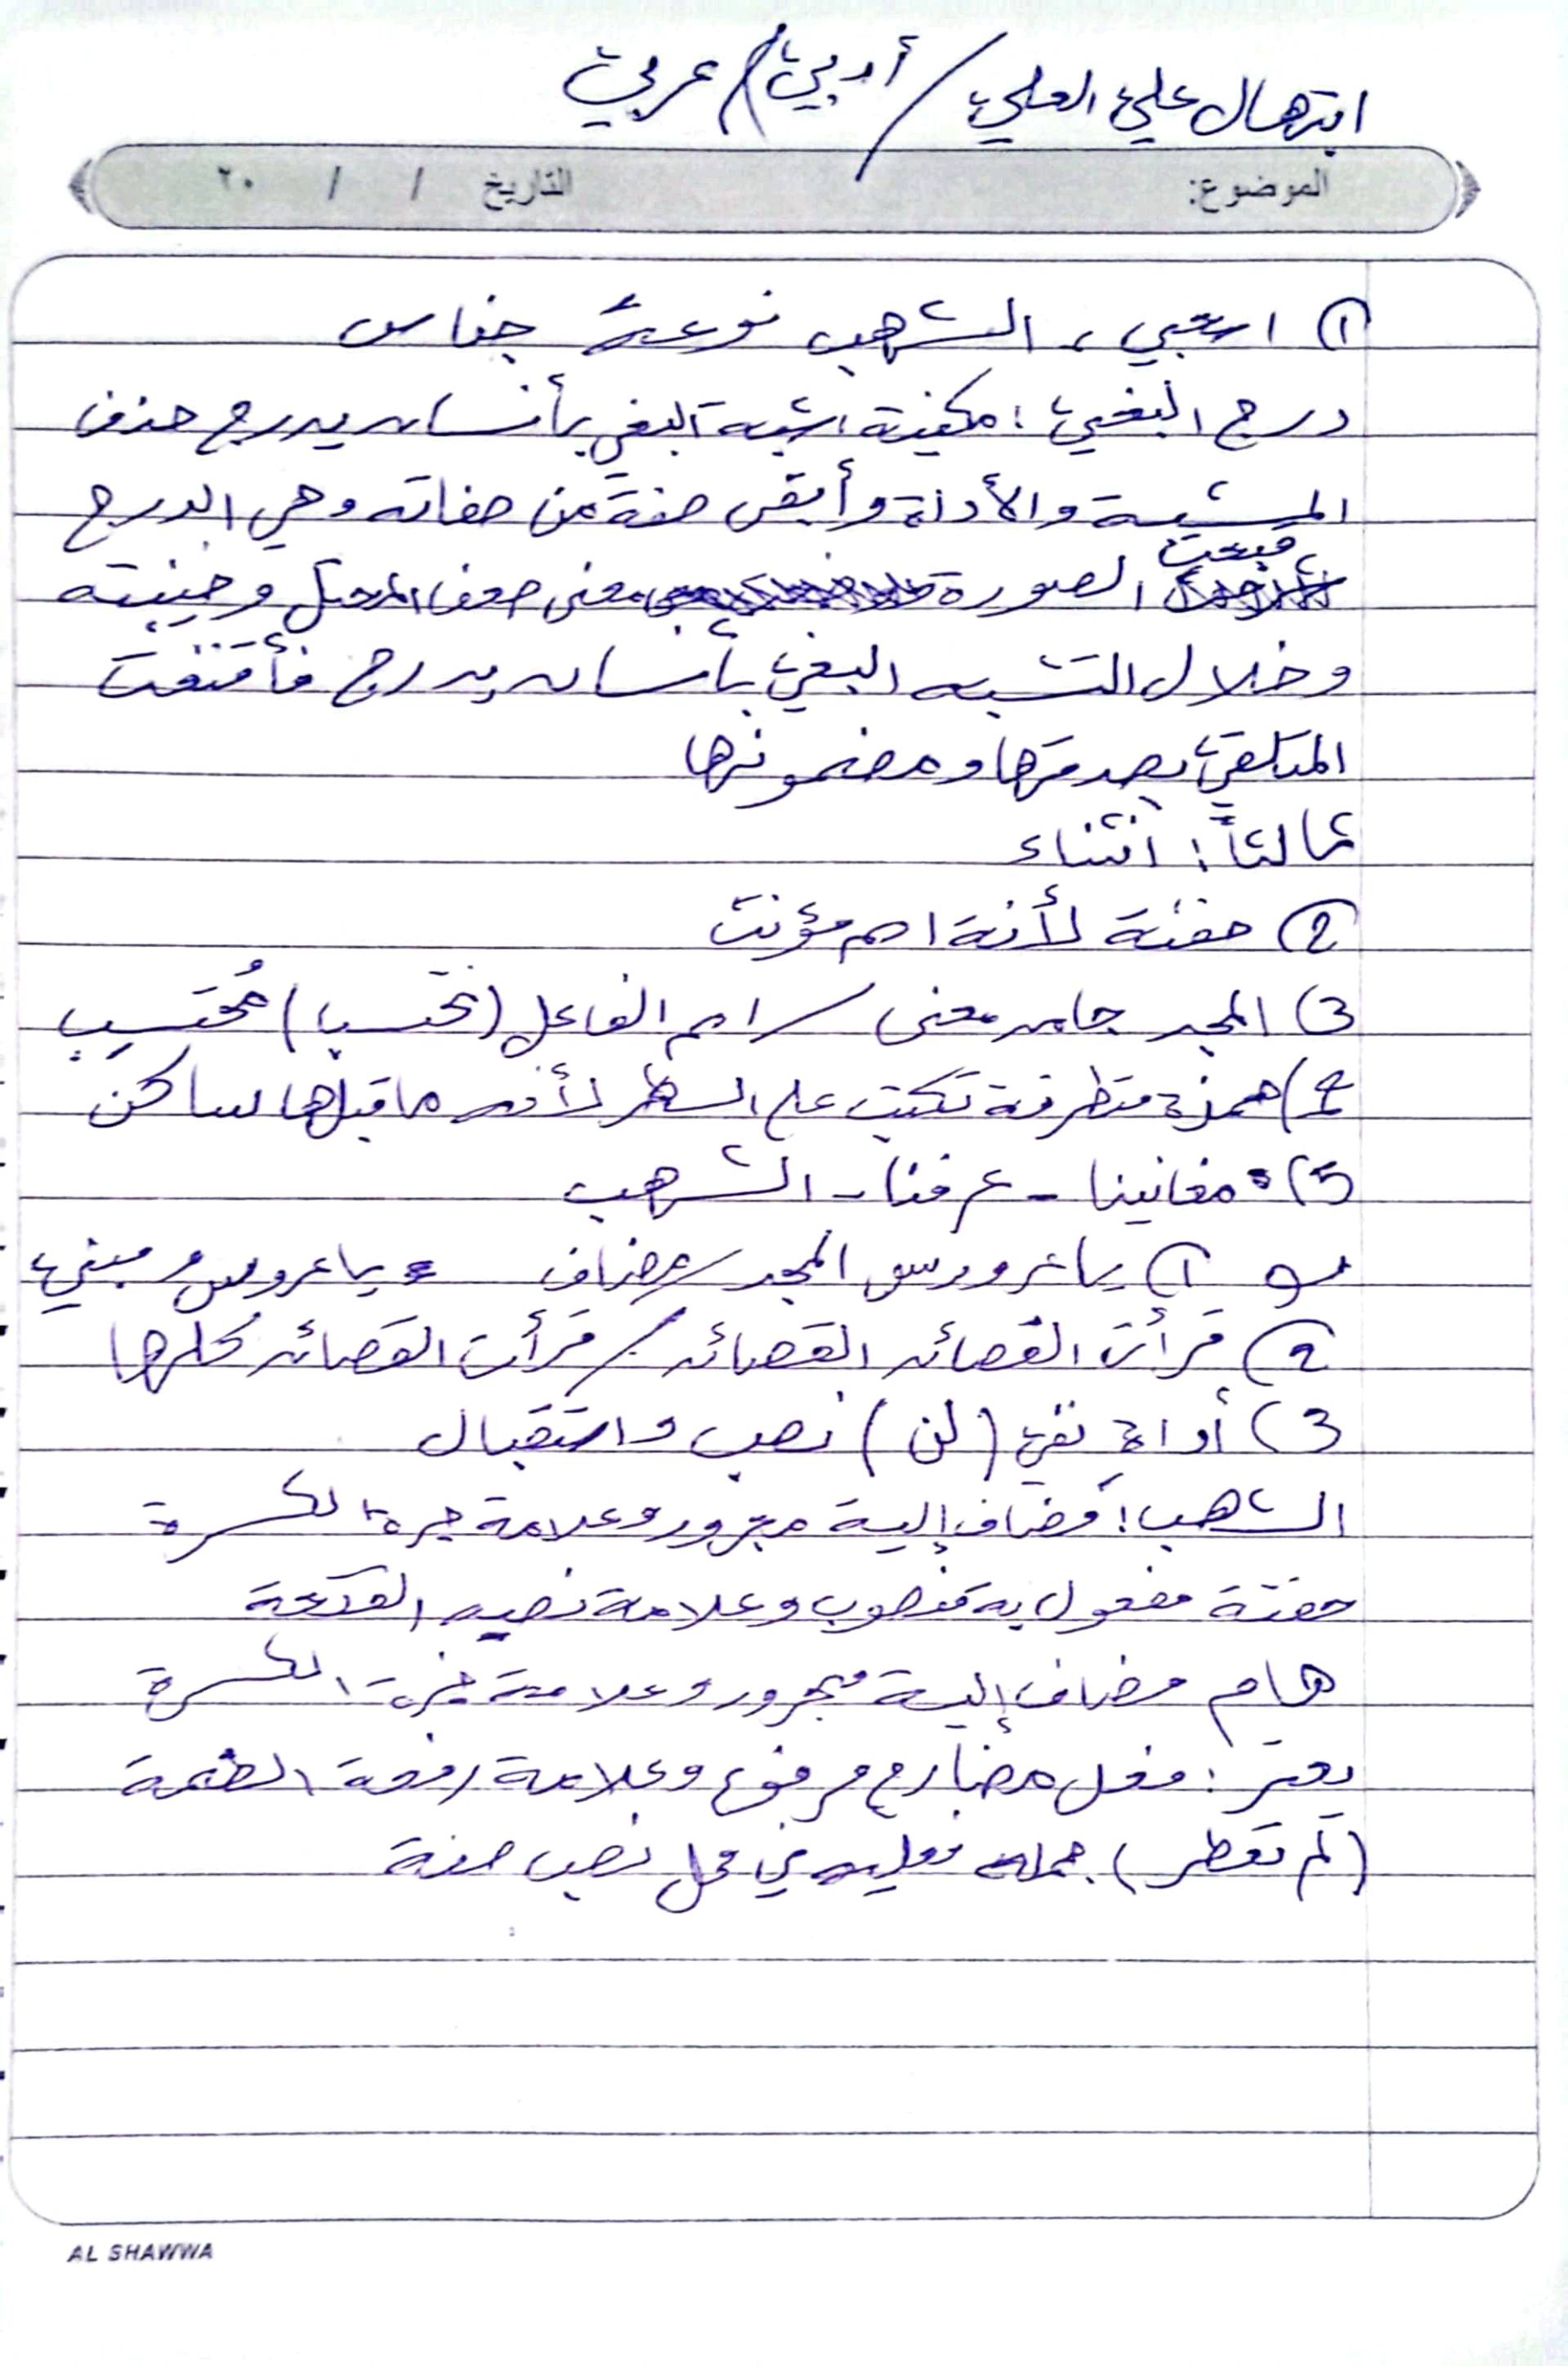 ابتهال علي العلي / أدبي / عربي
الموضوع: التاريخ / / ٢٠
① اسحبي ، الشهب نوعهُ جناس
درج البغي : مكنية اشبه البغي بأنسان يدرج حذف
المشبه والأداة وأبقى صفة من صفاته وهي الدرج
قبحت الصورة معنى ضعف المحتل وخيبته
وخلال التشبيه البغي بأنسان يدرج فأقنعت
المتلقي بصدقها ومضمونها
ثالثاً : انثناء
② حفنة لأنة اسم مؤنث
3) المجد جامد معنى / اسم الفاعل (تحتسبا) مُحتَسِب
4) همزة متطرفة تكتب على السطر لأنه ماقبلها ساكن
5) مغانينا - عرفنا - الشهب
1) ياعروس المجد / مضاف ياعروس مبني
2) قرأت القصائد القصائد / قرأت القصائد كلها
3) أداة نفي (لن) نصب واستقبال
الشهب : مضاف إلية مجرور وعلامة جرة الكسرة
حفنة مفعول بة منصوب وعلامة نصبه الفتحة
هام مضاف إلية مجرور وعلامة جرة الكسرة
: فعل مضارع مرفوع وعلامة رفعة الضمة
(لم تعطر) جملة فعليه في محل نصب صفة
AL SHAWWA